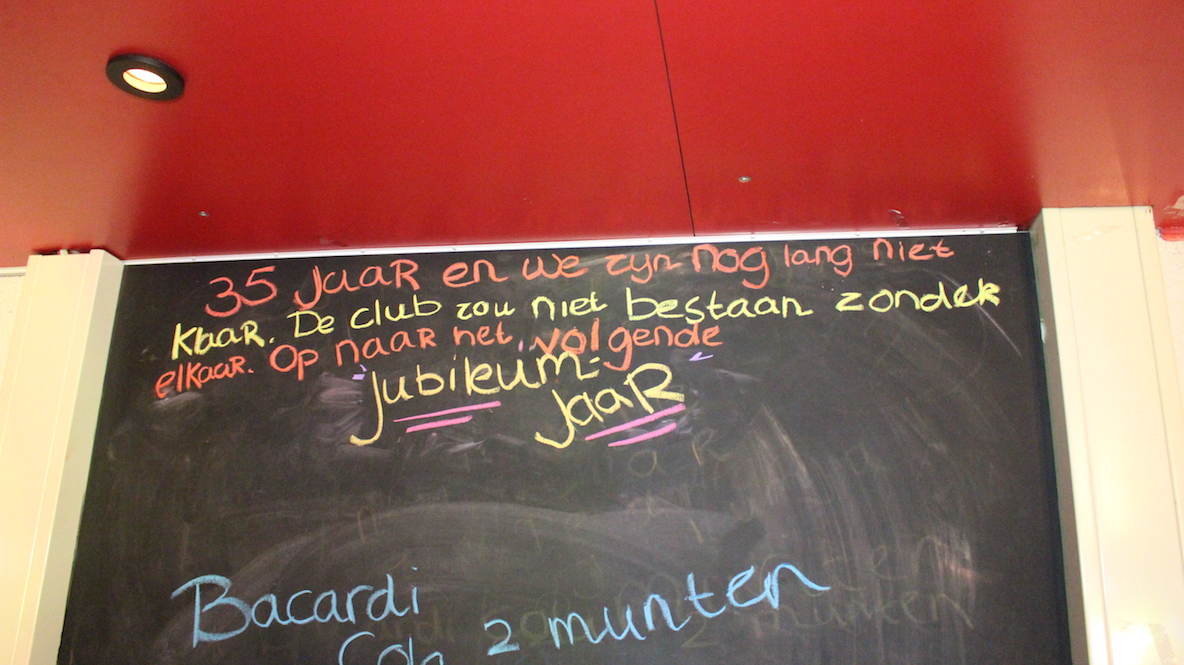 35 JaaR en we zijn nog lang niet
klaaR. De club zou niet bestaan zondeR
elkaaR. Op naaR het volgende
Jubileum-
JaaR
Bacardi
Cola 2 munten